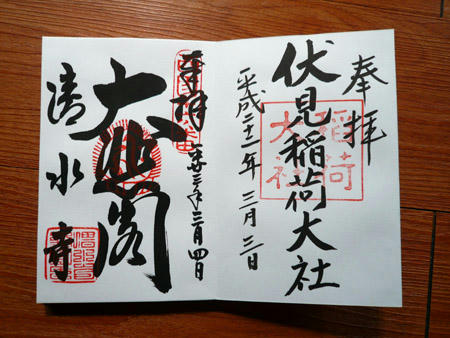 奉拝
伏見稲荷大社
稲荷
大社
平成二十二年 三月三日
奉拝
三月四日
大悲閣
清水寺